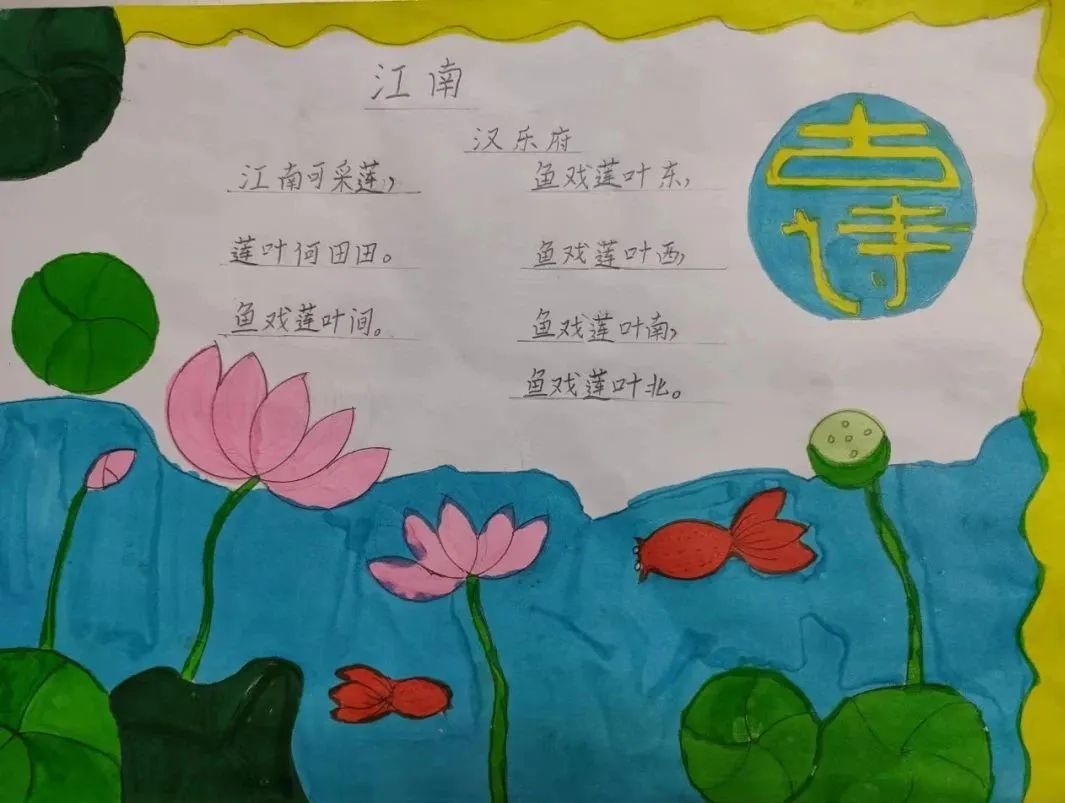 江南
汉乐府
江南可采莲,
莲叶何田田。
鱼戏莲叶间。
鱼戏莲叶东,
鱼戏莲叶西,
鱼戏莲叶南,
鱼戏莲叶北。
古诗